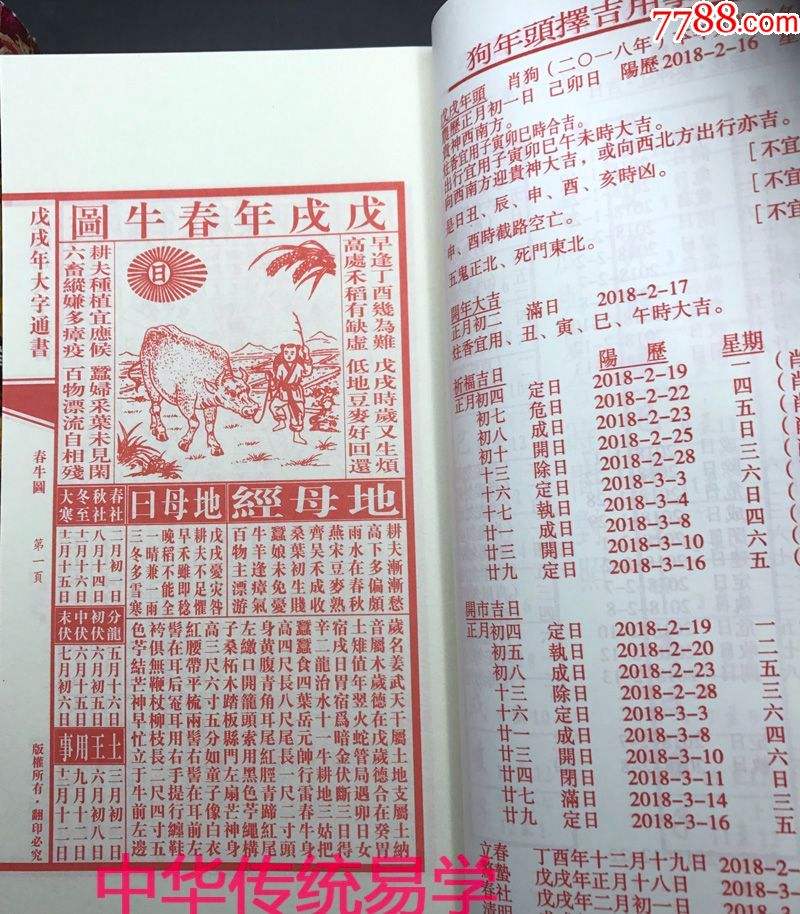 7788.com
戊戌年大字通書
春牛圖
第一頁
版權所有·翻印必究
戊戌年春牛圖
早逢丁酉幾為難
戊戌時歲又生煩
高處禾稻有缺虛
低地豆麥好回還
日
耕夫種植宜應候
蠶婦采葉未見閑
六畜縱嫌多瘴疫
百物漂流自相殘
地母經
耕夫漸漸愁
高下多偏頗
雨水在春秋
燕宋豆麥熟
齊吳禾成收
桑葉初生賤
蠶娘未免憂
牛羊逢瘴氣
百物主漂游
地母曰
戊戌憂災咎
耕夫不足懼
早禾雖即稳
晚稻不能全
一晴兼一雨
三冬多雪寒
春社
二月初一日
秋社
八月十四日
冬至
十一月十六日
大寒
十二月十五日
分龍
五月十六日
初伏
六月初五日
中伏
六月十五日
末伏
七月初六日
土王用事
三月初二日
六月初八日
九月十二日
十二月十二日
歲名姜武天干屬土地支屬土納
音屬木歲德在戊歲德合在癸胃
土雉值年翌火蛇管局遇卯日女
宿戌日胃宿爲暗金伏斷三日得
辛二龍治水十一牛耕地三姑把
蠶蠶食四葉岳元帥行雷春牛身
高四尺長八尺尾長一尺二寸頭
身黄腹青角耳尾紅脛青蹄紅尾
左繳口開籠頭索用黑色苧繩構
子桑柘木踏板縣門左扇芒神身
高三尺六寸五分如童子像白衣
紅腰帶平梳兩髻右髻在耳前左
髻在耳后罨耳用右手提行纏鞋
袴俱無鞭杖柳枝長二尺四寸五
色苧結芒神早忙立于牛前左邊
狗年頭擇吉用
戊戌年頭 肖狗(二〇一八年)
農歷正月初一日 己卯日 陽歷2018-2-16 星
貴神西南方。
炷香宜用子寅卯巳時合吉。
出行宜用子寅卯巳午未時大吉。
向西南方迎貴神大吉，或向西北方出行亦吉。
是日丑、辰、申、酉、亥時凶。
申、酉時截路空亡。
五鬼正北、死門東北。
[不宜
[不宜
[不
開年大吉
正月初二 滿日 2018-2-17
炷香宜用、丑、寅、巳、午時大吉。
陽歷 星期
祈福吉日
正月初四 定日 2018-2-19 一
初七 危日 2018-2-22 四
初八 成日 2018-2-23 五
初十 開日 2018-2-25 日
十三 除日 2018-2-28 三
十六 定日 2018-3-3 六
十七 執日 2018-3-4 日
廿一 成日 2018-3-8 四
廿三 開日 2018-3-10 六
廿九 定日 2018-3-16 五
開市吉日
正月初四 定日 2018-2-19 一
初五 執日 2018-2-20 二
初八 成日 2018-2-23 五
十三 除日 2018-2-28 三
十六 定日 2018-3-3 六
廿一 成日 2018-3-8 四
廿三 開日 2018-3-10 六
廿四 閉日 2018-3-11 日
廿七 滿日 2018-3-14 三
廿九 定日 2018-3-16 五
立春 丁酉年十二月十九日 2018-2-
驚蟄 戊戌年正月十八日 2018-
春社 戊戌年二月初一日 2018-
清明
中华传统易学